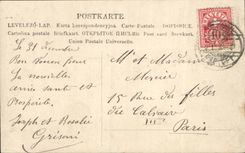 POSTKARTE
LEVELEZŐ-LAP. Karta korespondencyjna Carte Postale DOPISNICE.
Cartolina postale Briefkort. ОТКРЫТОЕ ПИСЬМО Post card Brevkort.
Union Postale Universelle.
Le 31
Bon
la nouvelle
année santé et
Prospérité.
Joseph et Rosalie
Grisoni
Mr et Madame
Mercier
15 Rue des filles
du Calvaire
Paris